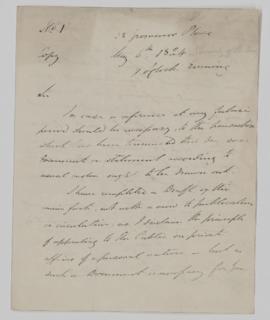 No 1
32 Grosvenor Place
Copy
May 5th 1824
9 o'clock evening
Sir
In case a reference at any future
period should be necessary to the transaction
which has been terminated this day some
document or statement according to
usual custom ought to be drawn out.
I have completed a Draft of the
main facts, not with a view to publication
or circulation, as I disclaim the principle
of appealing to the Public on private
affairs of a personal nature — but as
such a Document is necessary for you